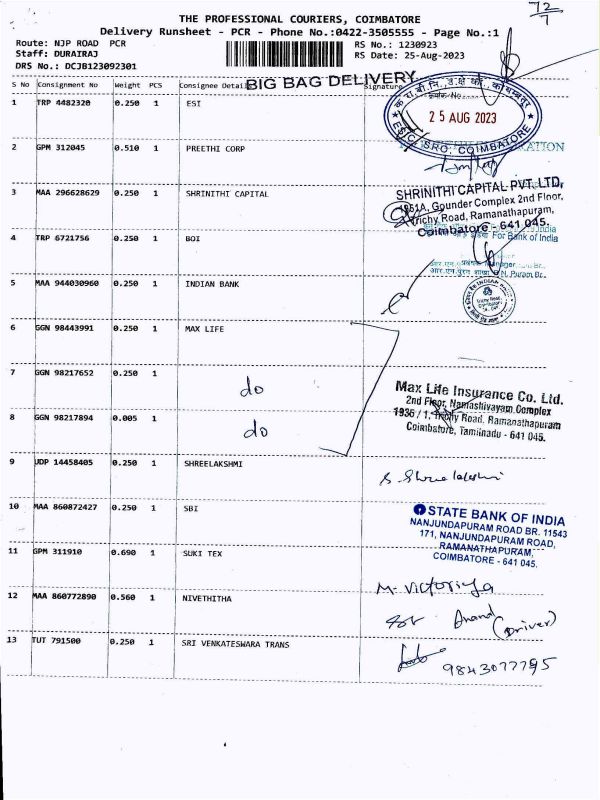 72/7
THE PROFESSIONAL COURIERS, COIMBATORE
Delivery Runsheet - PCR - Phone No.:0422-3505555 - Page No.:1
Route: NJP ROAD PCR RS No.: 1230923
Staff: DURAIRAJ RS Date: 25-Aug-2023
DRS No.: DCJB123092301
BIG BAG DELIVERY
S No Consignment No Weight PCS Consignee Detail Signature
1 TRP 4482320 0.250 1 ESI
No.
25 AUG 2023
ESIC, SRO, COIMBATORE
2 GPM 312045 0.510 1 PREETHI CORP
3 MAA 296628629 0.250 1 SHRINITHI CAPITAL
SHRINITHI CAPITAL PVT. LTD.
Gounder Complex 2nd Floor,
Trichy Road, Ramanathapuram,
Coimbatore - 641 045.
4 TRP 6721756 0.250 1 BOI
For Bank of India
Manager
Puram Br.
5 MAA 944030960 0.250 1 INDIAN BANK
6 GGN 98443991 0.250 1 MAX LIFE
7 GGN 98217652 0.250 1 do
Max Life Insurance Co. Ltd.
2nd Floor, Namashivayam Complex
1936 / 1, Trichy Road, Ramanathapuram
Coimbatore, Tamilnadu - 641 045.
8 GGN 98217894 0.005 1 do
9 UDP 14458405 0.250 1 SHREELAKSHMI
10 MAA 860872427 0.250 1 SBI
STATE BANK OF INDIA
NANJUNDAPURAM ROAD BR. 11543
171, NANJUNDAPURAM ROAD,
RAMANATHAPURAM,
COIMBATORE - 641 045.
11 GPM 311910 0.690 1 SUKI TEX
M. Victoriya
12 MAA 860772890 0.560 1 NIVETHITHA
Anand
(Driver)
13 TUT 791500 0.250 1 SRI VENKATESWARA TRANS
9843077795